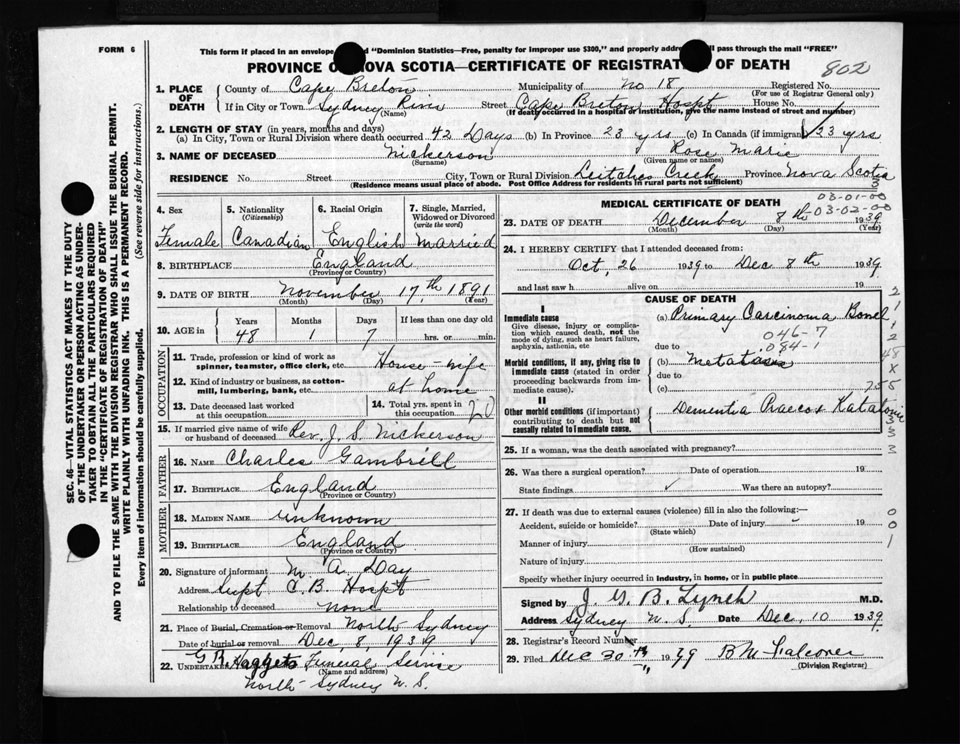 FORM 6
This form if placed in an envelope "Dominion Statistics—Free, penalty for improper use $300," and properly pass through the mail "FREE"
PROVINCE OVA SCOTIA—CERTIFICATE OF REGISTRAT OF DEATH
802
1. PLACE OF DEATH
County of Cape Breton Municipality of No 18 Registered No.
(For use of Registrar General only)
If in City or Town Sydney River Street Cape Breton Hospt House No.
(Name) (If death occurred in a hospital or institution, give the name instead of street and number)
2. LENGTH OF STAY (in years, months and days)
(a) In City, Town or Rural Division where death occurred 42 Days (b) In Province 23 yrs (c) In Canada (if immigrant) 23 yrs
3. NAME OF DECEASED Nickerson Rose Marie
(Surname) (Given name or names)
RESIDENCE No. Street City, Town or Rural Division Leitches Creek Province Nova Scotia
(Residence means usual place of abode. Post Office Address for residents in rural parts not sufficient)
4. Sex 5. Nationality (Citizenship) 6. Racial Origin 7. Single, Married, Widowed or Divorced (write the word)
Female Canadian English Married
8. BIRTHPLACE England
(Province or Country)
9. DATE OF BIRTH November 17th 1891
(Month) (Day) (Year)
10. AGE in Years Months Days If less than one day old
48 1 7 hrs. or min.
OCCUPATION
11. Trade, profession or kind of work as spinner, teamster, office clerk, etc. House-wife
12. Kind of industry or business, as cotton-mill, lumbering, bank, etc. at home
13. Date deceased last worked at this occupation 14. Total yrs. spent in this occupation 20
15. If married give name of wife or husband of deceased Rev. J. S. Nickerson
FATHER
16. NAME Charles Gambrill
17. BIRTHPLACE England
(Province or Country)
MOTHER
18. MAIDEN NAME unknown
19. BIRTHPLACE England
(Province or Country)
20. Signature of informant M A Day
Address Supt C. B. Hospt
Relationship to deceased none
21. Place of Burial, Cremation or Removal North Sydney
Date of burial or removal Dec, 8 1939
22. UNDERTAKER G R Haggets Funeral Service
(Name and address)
North Sydney N. S.
MEDICAL CERTIFICATE OF DEATH
03-01-00
03-02-00
3
23. DATE OF DEATH December 8th 1939
(Month) (Day) (Year)
24. I HEREBY CERTIFY that I attended deceased from:
Oct, 26 1939 to Dec 8th 1939
and last saw h alive on 19
CAUSE OF DEATH
I
Immediate cause
Give disease, injury or complication which caused death, not the mode of dying, such as heart failure, asphyxia, asthenia, etc
(a) Primary Carcinoma Bowel
046-7
due to 084-1
Morbid conditions, if any, giving rise to immediate cause (stated in order proceeding backwards from immediate cause).
(b)
due to
(c)
II
Other morbid conditions (if important) contributing to death but not causally related to immediate cause.
Dementia Praecox
25. If a woman, was the death associated with pregnancy?
26. Was there a surgical operation? Date of operation 19
State findings ✓ Was there an autopsy?
27. If death was due to external causes (violence) fill in also the following:—
Accident, suicide or homicide? Date of injury 19
(State which)
Manner of injury
(How sustained)
Nature of injury
Specify whether injury occurred in industry, in home, or in public place
Signed by J. G. B. Lynch M.D.
Address Sydney N. S. Date Dec, 10 1939
28. Registrar's Record Number
29. Filed Dec 30th 1939
(Division Registrar)
SEC. 46—VITAL STATISTICS ACT MAKES IT THE DUTY OF THE UNDERTAKER OR PERSON ACTING AS UNDERTAKER TO OBTAIN ALL THE PARTICULARS REQUIRED IN THE "CERTIFICATE OF REGISTRATION OF DEATH" AND TO FILE THE SAME WITH THE DIVISION REGISTRAR WHO SHALL ISSUE THE BURIAL PERMIT.
WRITE PLAINLY WITH UNFADING INK. THIS IS A PERMANENT RECORD.
Every item of information should be carefully supplied. (See reverse side for instructions.)